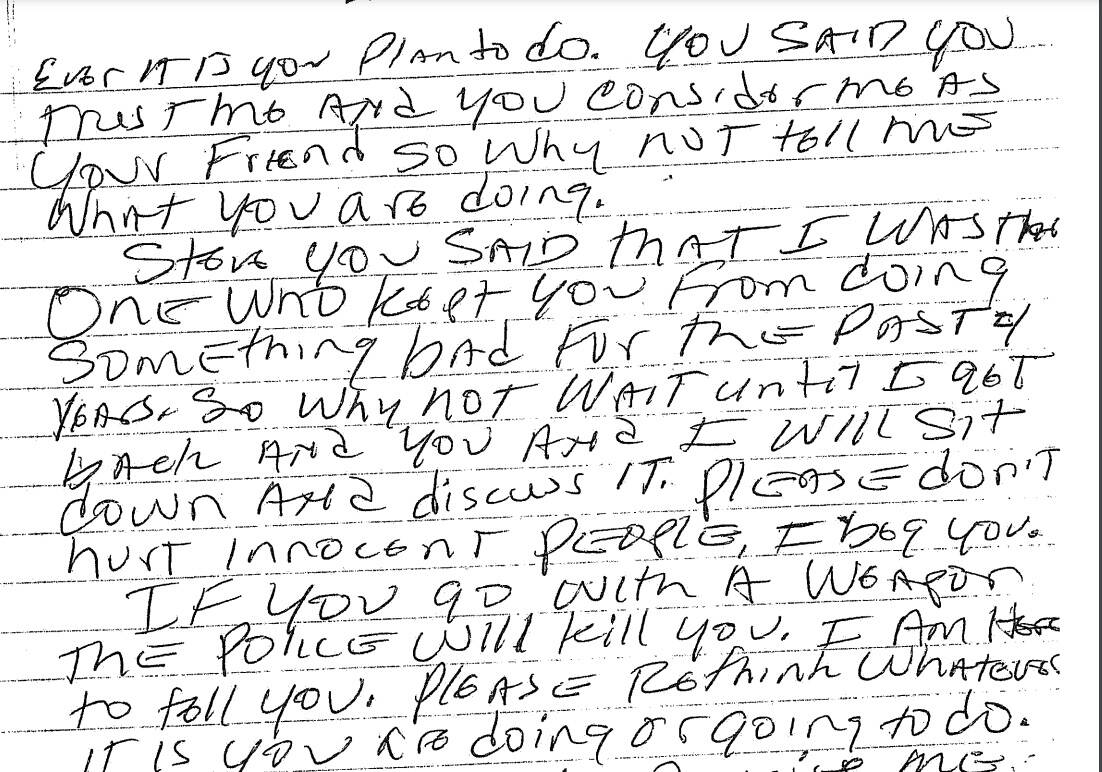 Ever it is your Plan to do. You SAID you
trust me And you consider me As
Your Friend so Why NOT tell me
What you are doing.
Steve you SAID that I WAS the
One who kept you From doing
Something bad For the PAST 4
years. So Why not WAIT until I get
back And you And I will Sit
down And discuss IT. Please don't
hurt Innocent People, I beg you.
If you go with A Weapon
The Police will kill you. I Am Here
to tell you. Please Rethink Whatever
it is you are doing or going to do.
me.